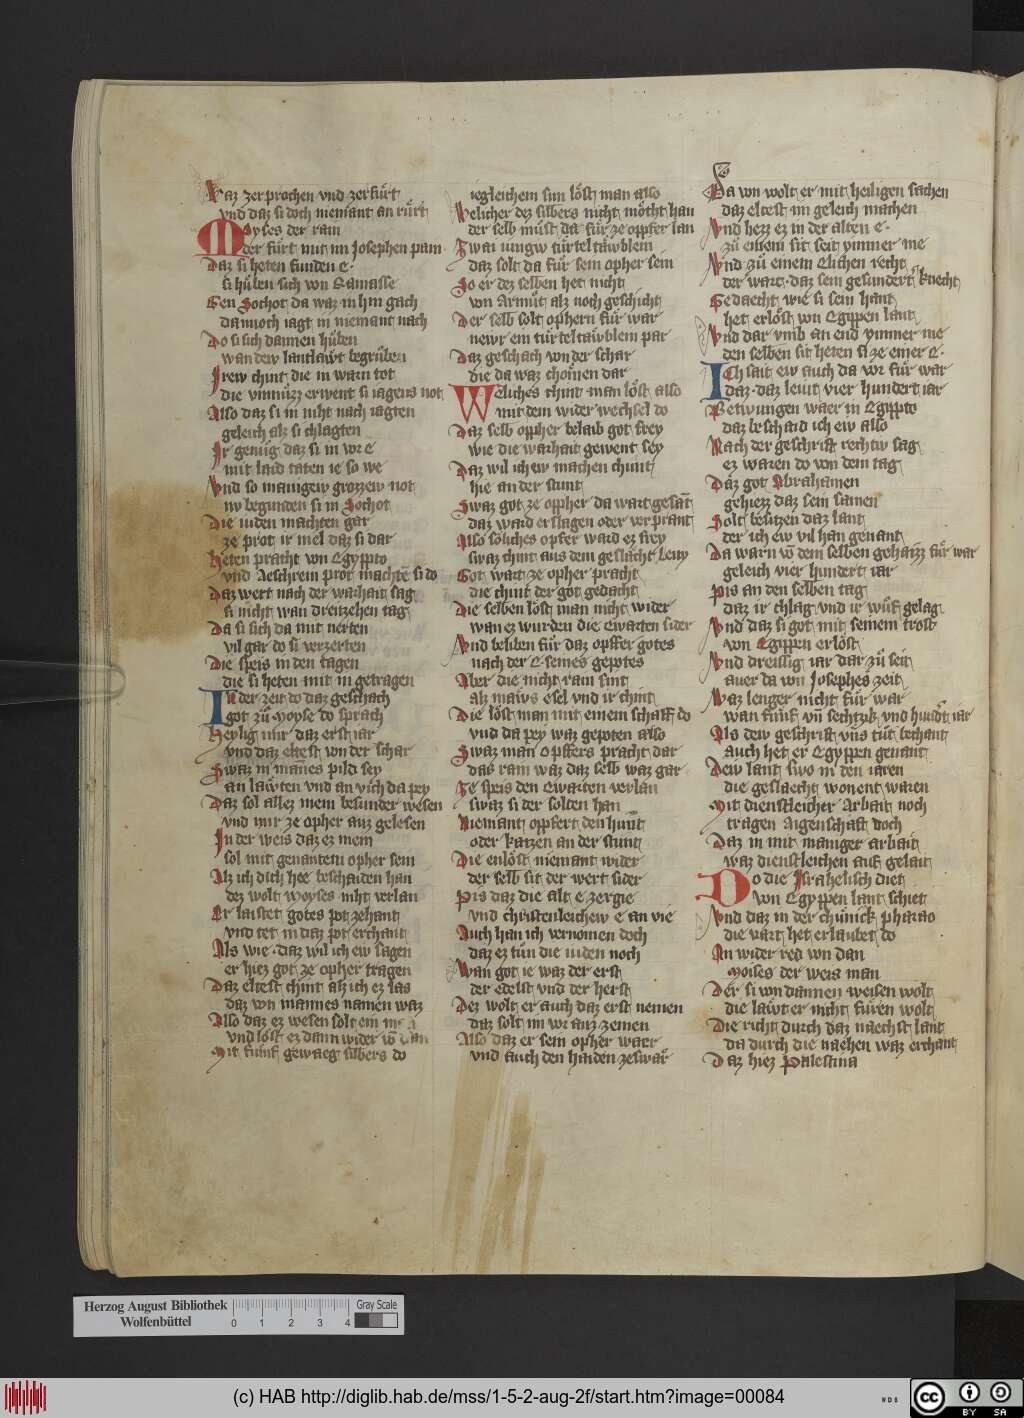 Waz zerprochen vnd zerfuͤrt
vnd daz si doch niemant an ruͤrt
Moyses der rain
der fuͤrt mit im Josephen pain
Daz si heten funden E·
si huͤben sich von Ramasse
Gen Sochot da waz in hin gach
dannoch iagt in niemant nach
Do si sich dannen huͤben
wan dew lantlawt begruͤben
Irew chint die in warn tot
die vinnuzz erwent si iagens not
Also daz si in niht nach iagten
geleich alz si chlagten
Ir genuͤg daz si in vor E
mit laid taten ie so we
Vnd so manigew grozzew not
nv begunden si in Sochot
Die iuden machten gar
ze prot ir mel daz si dar
Heten pracht von Egyppto
vnd Aeschrein prot machtē si do
Daz wert nach der warhait sag
si nicht wan dreitzehen tag
Da si sich da mit nerten
vil gar do si verzerten
Die speis in den tagen
die si heten mit in getragen
In der zeit do daz geschach
got zuͤ Moyse do sprach
Heylig mir daz erst iar
vnd daz eltest von der schar
Swaz in mānes pild sey
an lawten vnd an vich da pey
Daz sol allez mein besunder wesen
vnd mir ze opher auz gelesen
In der weis daz ez mein
sol mit genantem opher sein
Alz ich dich hee beschaiden han
dez wolt Moyses niht verlan
Er laistet gotes pot zehant
vnd tet in daz pot erchant
Als wie · daz wil ich ew sagen
er hiez got ze opher tragen
Daz eltest chint alz ich ez las
daz von mannes namen waz
Also daz ez wesen solt ein
vnd loͤst ez dann wider
Mit fuͤnf gewaeg silbers do
iegleichem sun loͤst man also
Welicher dez silbers nicht moͤcht han
der selb muͤst da fuͤr ze opffer lan
Zwai iungw tuͤrteltawblein
daz solt da fuͤr sein opher sein
So er dez selben het nicht
von Armuͤt alz noch geschicht
Der selb solt ophern fuͤr war
newr ein tuͤrteltawblein par
Daz geschach von der schar
die da waz chomen dar
Weliches chint man loͤst also
mit dem wider wechsel do
Daz selb opher belaib got frey
wie die warhait gewent sey
Daz wil ich ew machen chunt
hie an der stunt
Swaz got ze opher da wart gesāt
daz ward erslagen oder verprant
Also soͤliches opfer ward ez frey
swaz chint aus dem geslaͤcht Leuy
Got wart ze opher pracht
die chint der got gedacht
Die selben loͤst man nicht wider
wan ez wurden die Ewarten sider
Vnd beliben fuͤr daz opffer gotes
nach der E seines gepotes
Aber die nicht rain sint
alz maͤws esel vnd ir chint
Die loͤst man mit einem schaff do
vnd da pey waz gepoten also
Swaz man opffers pracht dar
das rain waz daz selb waz gar
Ze speis den Ewarten verlan
swaz si der solten han
Niemant oppfert den hunt
oder katzen an der stunt
Die enloͤst niemant wider
der selb sit der wert sider
Pis daz die alt E zergie
vnd christenleichew E an vie
Auch han ich vernomen doch
daz ez tuͤn die iuden noch
Wan got ie waz der erst
der edelst vnd der herst
Dez wolt er auch daz erst nemen
daz solt im vor auz zemen
Also daz er sein opher waer
vnd auch den haiden zeswar
Da von wolt er mit heiligen sachen
daz eltest im geleich machen
Vnd herz ez in der alten E·
zuͤ einem sit seit ymmer me
Vnd zuͤ einem Elichen recht
der wart · daz sein gesundert knecht
Gedaecht wie si sein hant
het erloͤst von Egyppen lant
Vnd dar vmb an end ymmer me
den selben sit heten si ze einer E·
Ich sait ew auch da vor fuͤr war
daz · daz leuut vier hundert iar
Betwungen waer in Egippto
daz beschaid ich ew also
Nach der geschrift rechtw sag
ez waren do von dem tag
Daz got Abrahamen
gehiezz daz sein samen
Solt besitzen daz lant
der ich ew vil han genant
Da warn vō dem selben gehaizz fuͤr war
geleich vier hundert iar
Pis an den selben tag
daz ir chlag vnd ir wuͤf gelag
Vnd daz si got mit seinem trost
von Egippen erloͤst
Vnd dreissig iar dar zuͤ seit
auer da von Josephes zeit
Waz lenger nicht fuͤr war
wan fuͤnf vn̄ sechtzk vnd hundt iar
Als dew geschrift vns tuͤt bechant
auch het er Egyppen genant
Dew lant swo in den iaren
die geslaecht wonent waren
Mit dienstleicher Arbait noch
tragen Aigenschaft doch
Daz in mit maniger arbait
waz dienstleichen auf gelait
Do die Israhelisch diet
von Egyppen lant schiet
Vnd daz in der chuͤnick pharao
die vart het erlaubet do
An wider red von dan
Moises der weis man
Der si von dannen weisen wolt
die lawt er nicht fuͤren wolt
Die richt durch daz naechst lant
da durch die nachen waz erchant
Daz hiez Palestina
Herzog August Bibliothek
Wolfenbüttel
0 1 2 3 4
Gray Scale
(c) HAB http://diglib.hab.de/mss/1-5-2-aug-2f/start.htm?image=00084
WD6
cc BY SA